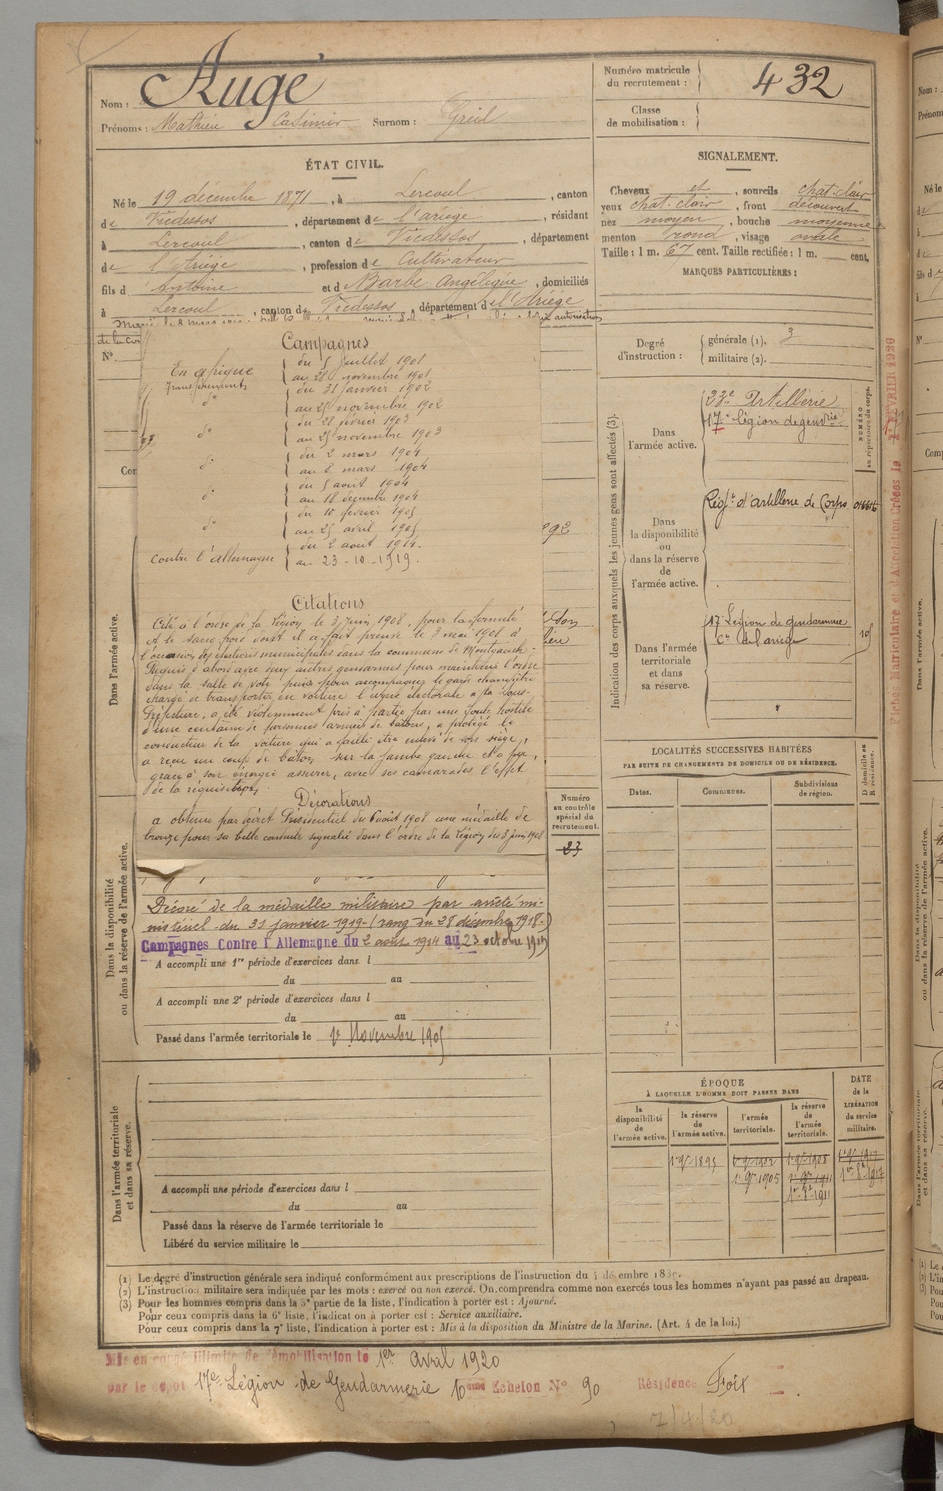 Nom : Augé
Prénoms : Mathieu Casimir Surnom : Greil
Numéro matricule du recrutement : 432
Classe de mobilisation :
ÉTAT CIVIL.
Né le 19 décembre 1871, à Lercoul, canton
de Vicdessos, département de l'ariège, résidant
à Lercoul, canton de Vicdessos, département
de l'Ariège, profession de Cultivateur
fils d'Antoine et de Barbe Angélique, domiciliés
à Lercoul, canton de Vicdessos, département de l'Ariège
SIGNALEMENT.
Cheveux et, sourcils chat. clair
yeux chat. clair, front découvert
nez moyen, bouche moyenne
menton rond, visage ovale
Taille : 1 m. 67 cent. Taille rectifiée : 1 m. cent.
MARQUES PARTICULIÈRES :
Degré d'instruction : générale (1). 3
militaire (2).
Campagnes
En afrique du 5 Juillet 1901
au 28 novembre 1901
du 31 janvier 1902
au 25 novembre 1902
d° du 28 février 1903
au 25 novembre 1903
d° du 2 mars 1904
au 8 mars 1904
d° du 5 août 1904
au 18 décembre 1904
d° du 10 février 1905
au 25 avril 1905
Contre l'allemagne du 2 aout 1914.
au 23-10-1919.
Citations
Cité à l'ordre de la Légion le 3 juin 1908, pour la fermeté
et le sang froid dont il a fait preuve le 3 mai 1908 à
l'occasion des élections municipales dans la commune de
Requis d'abord avec deux autres gendarmes pour maintenir l'ordre
dans la salle de vote puis pour accompagner le garde champêtre
chargé de transporter en voiture l'urne électorale à la Sous-
Préfecture, a été violemment pris à partie par une foule hostile
d'une centaine de personnes armées de bâtons, a protégé le
conducteur de la voiture qui a failli être enlevé de son siège,
a reçu un coup de bâton sur la jambe gauche et a pu,
grâce à son énergie assurer, avec ses camarades l'effet
de la réquisition.
Décorations
a obtenu par décret Présidentiel du 6 août 1908 une médaille de
bronze pour sa belle conduite signalée dans l'ordre de la Légion du 3 juin 1908
Décoré de la médaille militaire par arrêté mi-
nistériel du 31 janvier 1919 (rang du 28 décembre 1918.)
Campagnes Contre l'Allemagne du 2 août 1914 au 23 octobre 1919
A accompli une 1re période d'exercices dans l
du au
A accompli une 2e période d'exercices dans l
du au
Passé dans l'armée territoriale le 1er Novembre 1905
Dans l'armée active.
Dans la disponibilité ou dans la réserve de l'armée active.
Dans l'armée territoriale et dans sa réserve.
A accompli une période d'exercices dans l
du au
Passé dans la réserve de l'armée territoriale le
Libéré du service militaire le
Numéro au contrôle spécial du recrutement.
23
Indication des corps auxquels les jeunes gens sont affectés (3).
NUMÉRO au répertoire du corps.
Dans l'armée active.
23e Artillerie
17e légion de gendrie
Dans la disponibilité ou dans la réserve de l'armée active.
Régt d'artillerie de Corps
Dans l'armée territoriale et dans sa réserve.
17 Légion de gendarmerie
Cie de l'ariège
LOCALITÉS SUCCESSIVES HABITÉES
PAR SUITE DE CHANGEMENTS DE DOMICILE OU DE RÉSIDENCE.
Dates. Communes. Subdivisions de région. D domicile ou R résidence.
ÉPOQUE
À LAQUELLE L'HOMME DOIT PASSER DANS
la disponibilité de l'armée active.
la réserve de l'armée active.
l'armée territoriale.
la réserve de l'armée territoriale.
DATE de la LIBÉRATION du service militaire.
(1) Le degré d'instruction générale sera indiqué conformément aux prescriptions de l'instruction du
(2) L'instruction militaire sera indiquée par les mots : exercé ou non exercé. On comprendra comme non exercés tous les hommes n'ayant pas passé au drapeau.
(3) Pour les hommes compris dans la 5e partie de la liste, l'indication à porter est : Ajourné.
Pour ceux compris dans la 6e liste, l'indication à porter est : Service auxiliaire.
Pour ceux compris dans la 7e liste, l'indication à porter est : Mis à la disposition du Ministre de la Marine. (Art. 4 de la loi.)
Mis en congé illimité de démobilisation le 1er Avril 1920
par le dépôt 17e Légion de Gendarmerie 10eme Echelon N° 90 Résidence Foix
7/4/20